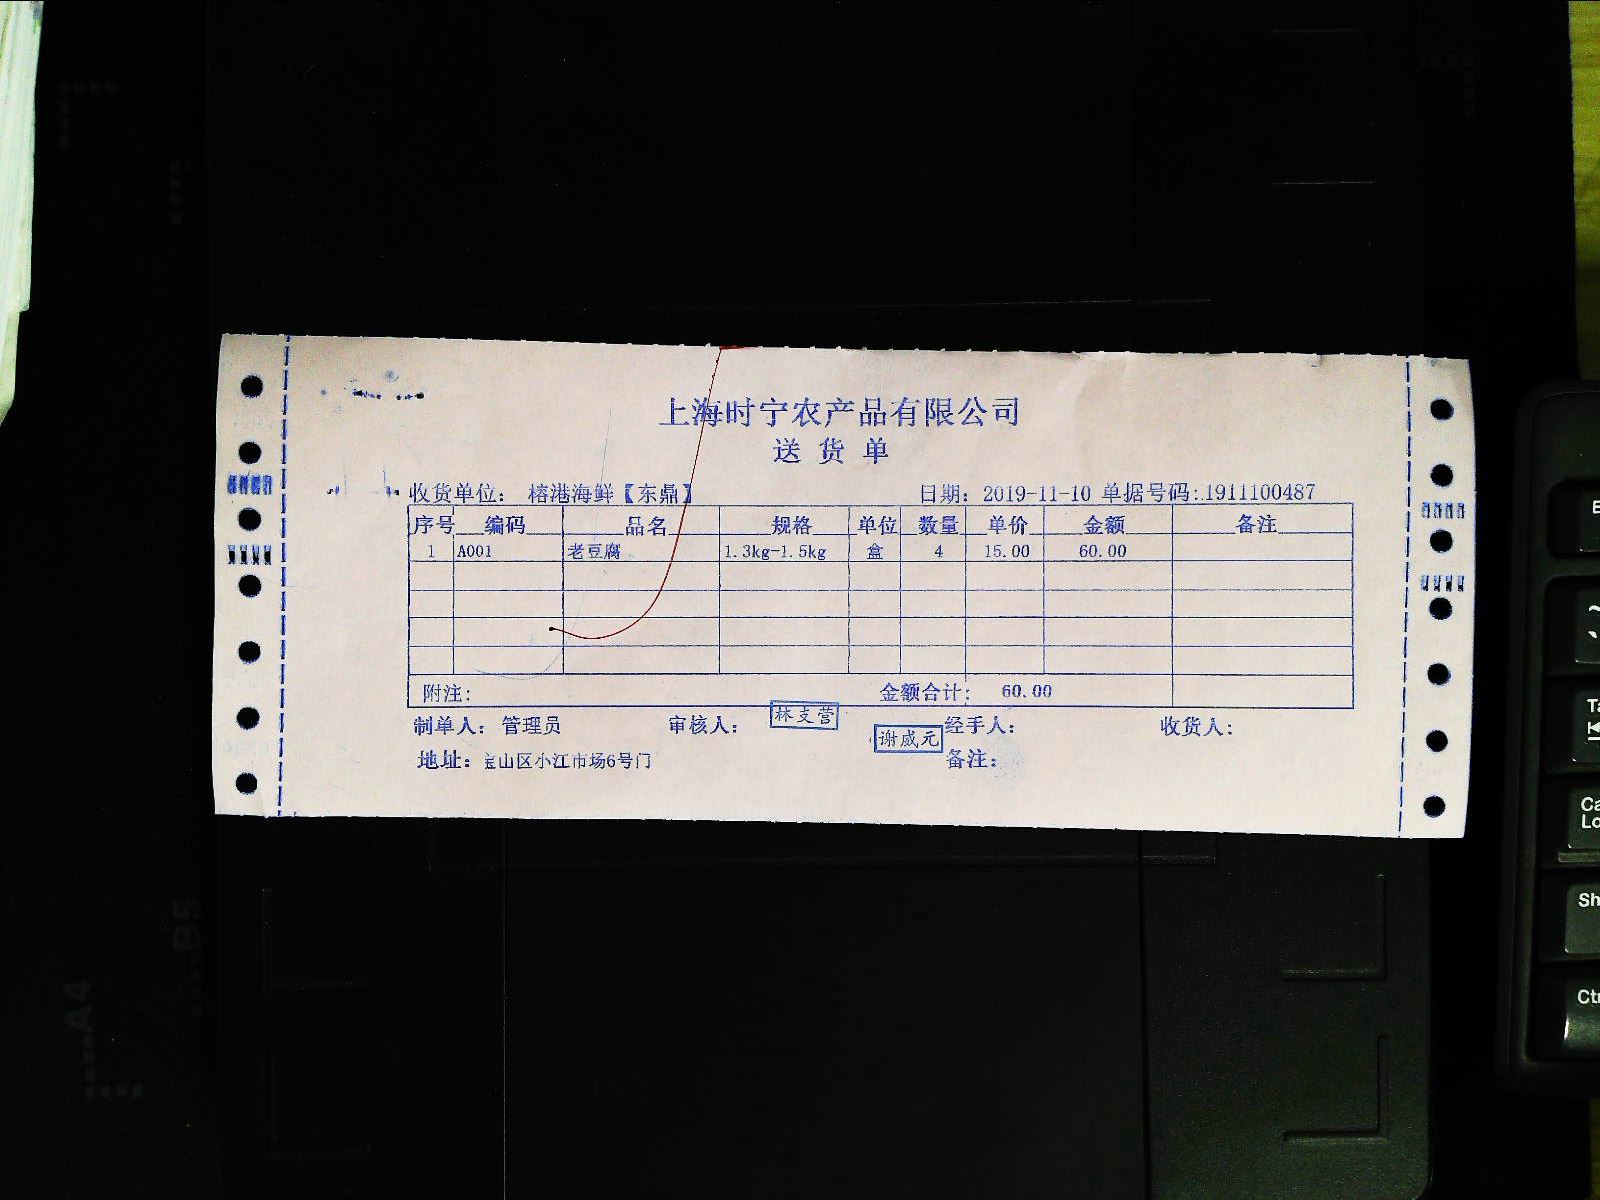 上海时宁农产品有限公司
送货单
收货单位: 榕港海鲜【东鼎】 日期: 2019-11-10 单据号码:1911100487
序号 编码 品名 规格 单位 数量 单价 金额 备注
1 A001 老豆腐 1.3kg-1.5kg 盒 4 15.00 60.00
附注: 金额合计: 60.00
制单人: 管理员 审核人: 林支营 谢威元 经手人: 收货人:
地址: 宝山区小江市场6号门 备注:
A4
B5
Sh